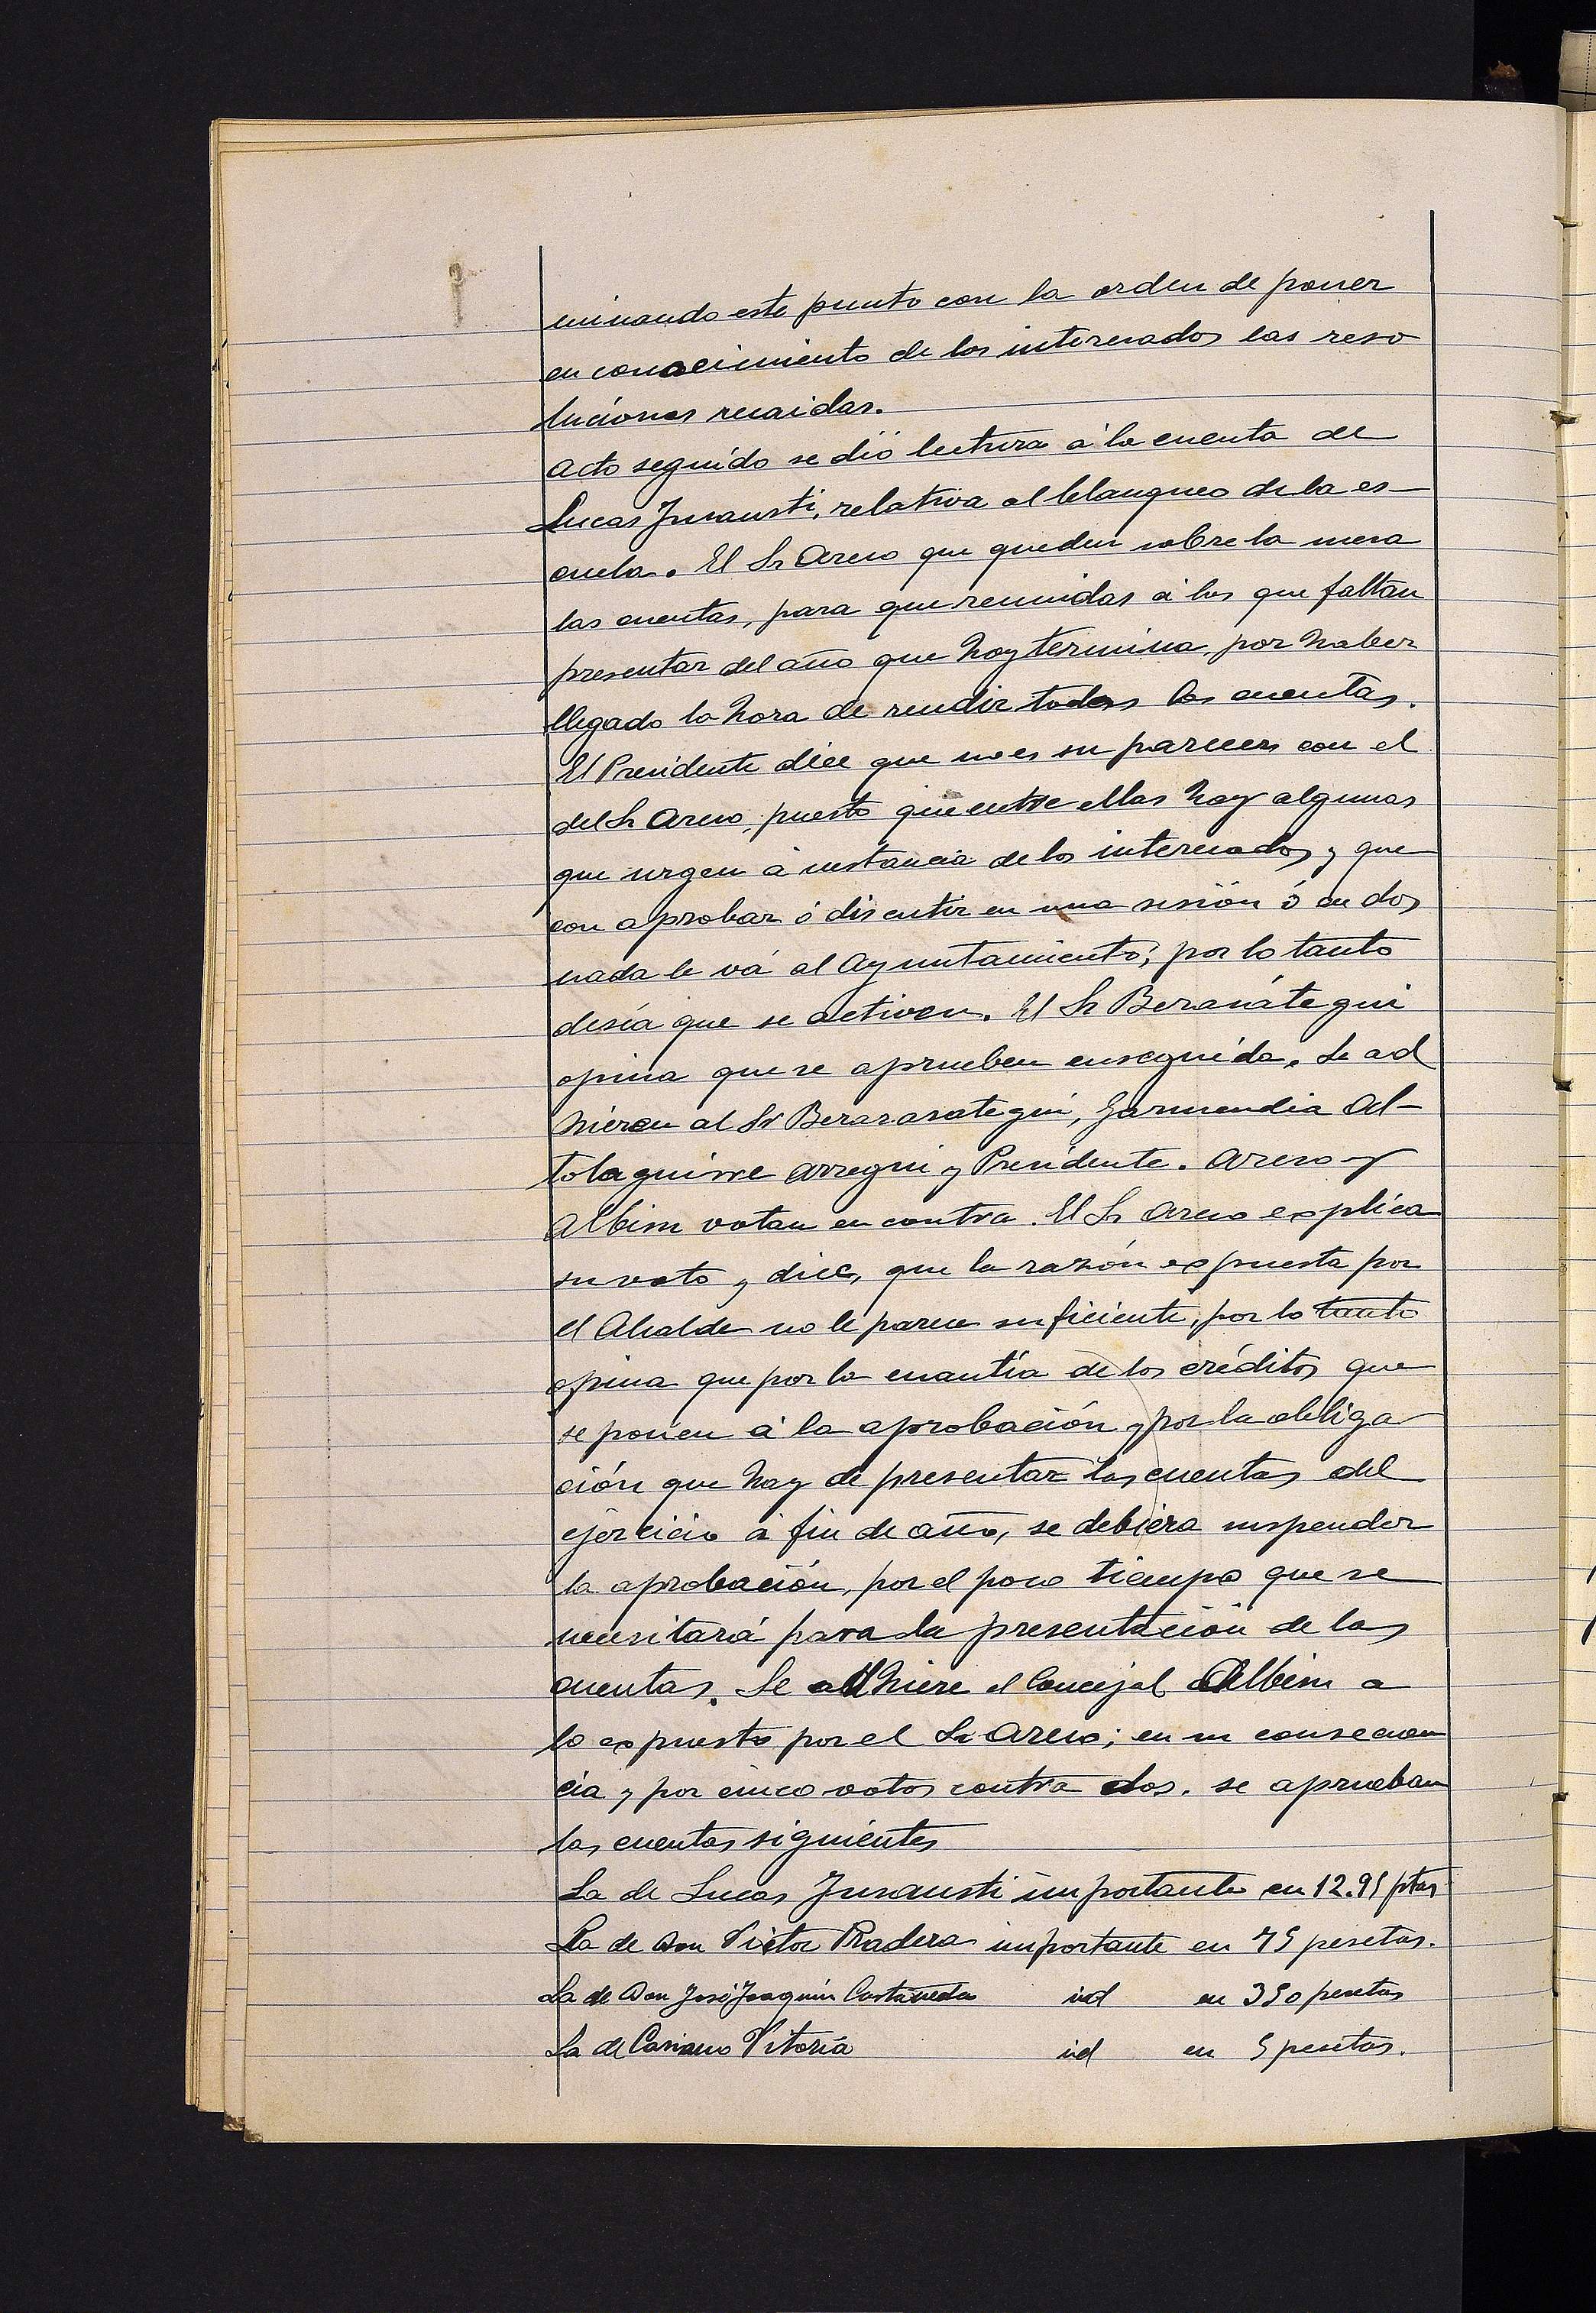 minando este punto con la orden de poner
en conocimiento de los interesados las reso
luciones recaidas.
Acto seguido se dió lectura á la cuenta de
Lucas Jusausti, relativa al blanqueo de la es-
cuela. El Sr Areso que queden sobre la mesa
las cuentas, para que reunidas á las que faltan
presentar del año que hoy termina, por haber
llegado la hora de rendir todas las cuentas.
El Presidente dice que no es su parecer con el
del Sr Areso, puesto que entre ellas hay algunas
que urgen á instancia de los interesados y que
con aprobar ó discutir en una sesión ó en dos
nada le vá al Ayuntamiento; por lo tanto
desía que se activen. El Sr Berasátegui
opina que se aprueben enseguida. Se ad
hieren al Sr Berasarategui, Garmendia Al-
tolaguirre Arregui y Presidente. Areso y
Albisu votan en contra. El Sr Areso explica
su voto y dice, que la razón expuesta por
el Alcalde no le parece suficiente, por lo tanto
opina que por la cuantía de los créditos que
se ponen á la aprobación y por la obliga
ción que hay de presentar las cuentas del
ejercicio á fin de año, se debiera suspender
la aprobación, por el poco tiempo que se
necesitará para la presentación de las
cuentas. Se adhiere el Concejal Albisu a
lo expuesto por el Sr Areso; en su consecuen
cia y por cinco votos contra dos. se aprueban
las cuentas siguientes
La de Lucas Jusausti importante en 12.95 ptas
La de Don Victor Pradera importante en 75 pesetas.
La de Don José Joaquin Castañeda id en 350 pesetas
La de Vitoria id en 5 pesetas.